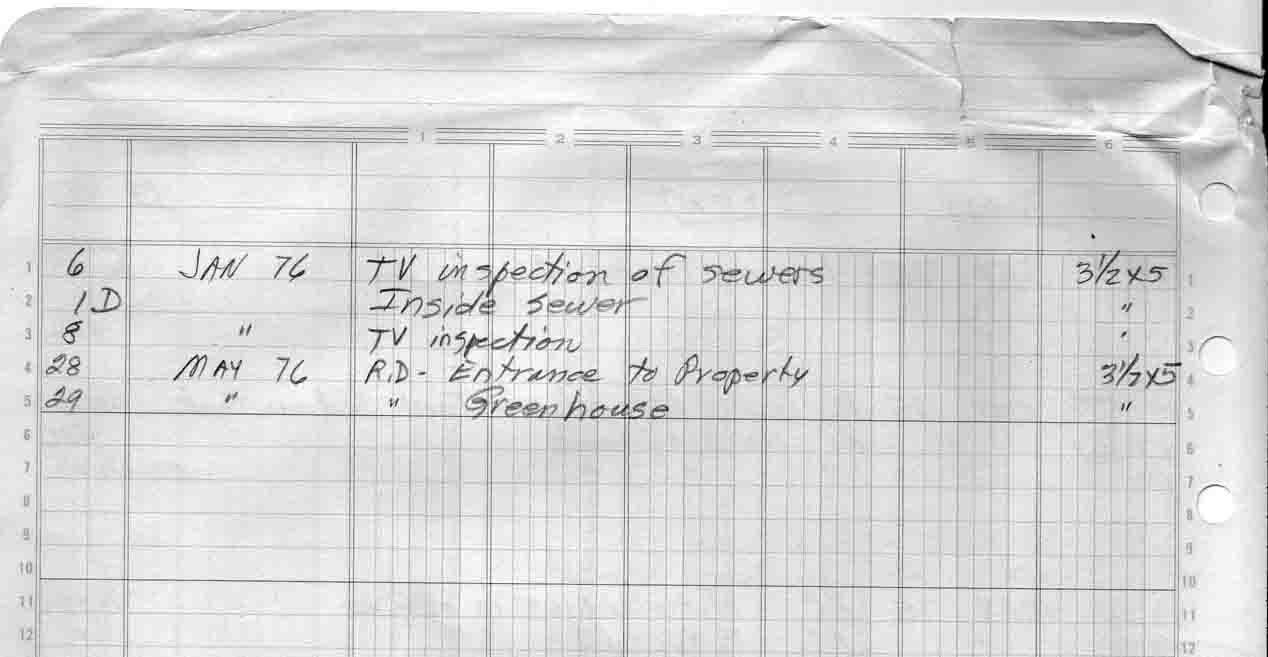 1 2 3 4 5 6
1 6 JAN 76 TV inspection of sewers 3 1/2 x 5 1
2 1D Inside sewer " 2
3 8 " TV inspection " 3
4 28 MAY 76 R.D- Entrance to Property 3 1/2 x 5 4
5 29 " " Greenhouse " 5
6 6
7 7
8 8
9 9
10 10
11 11
12 12